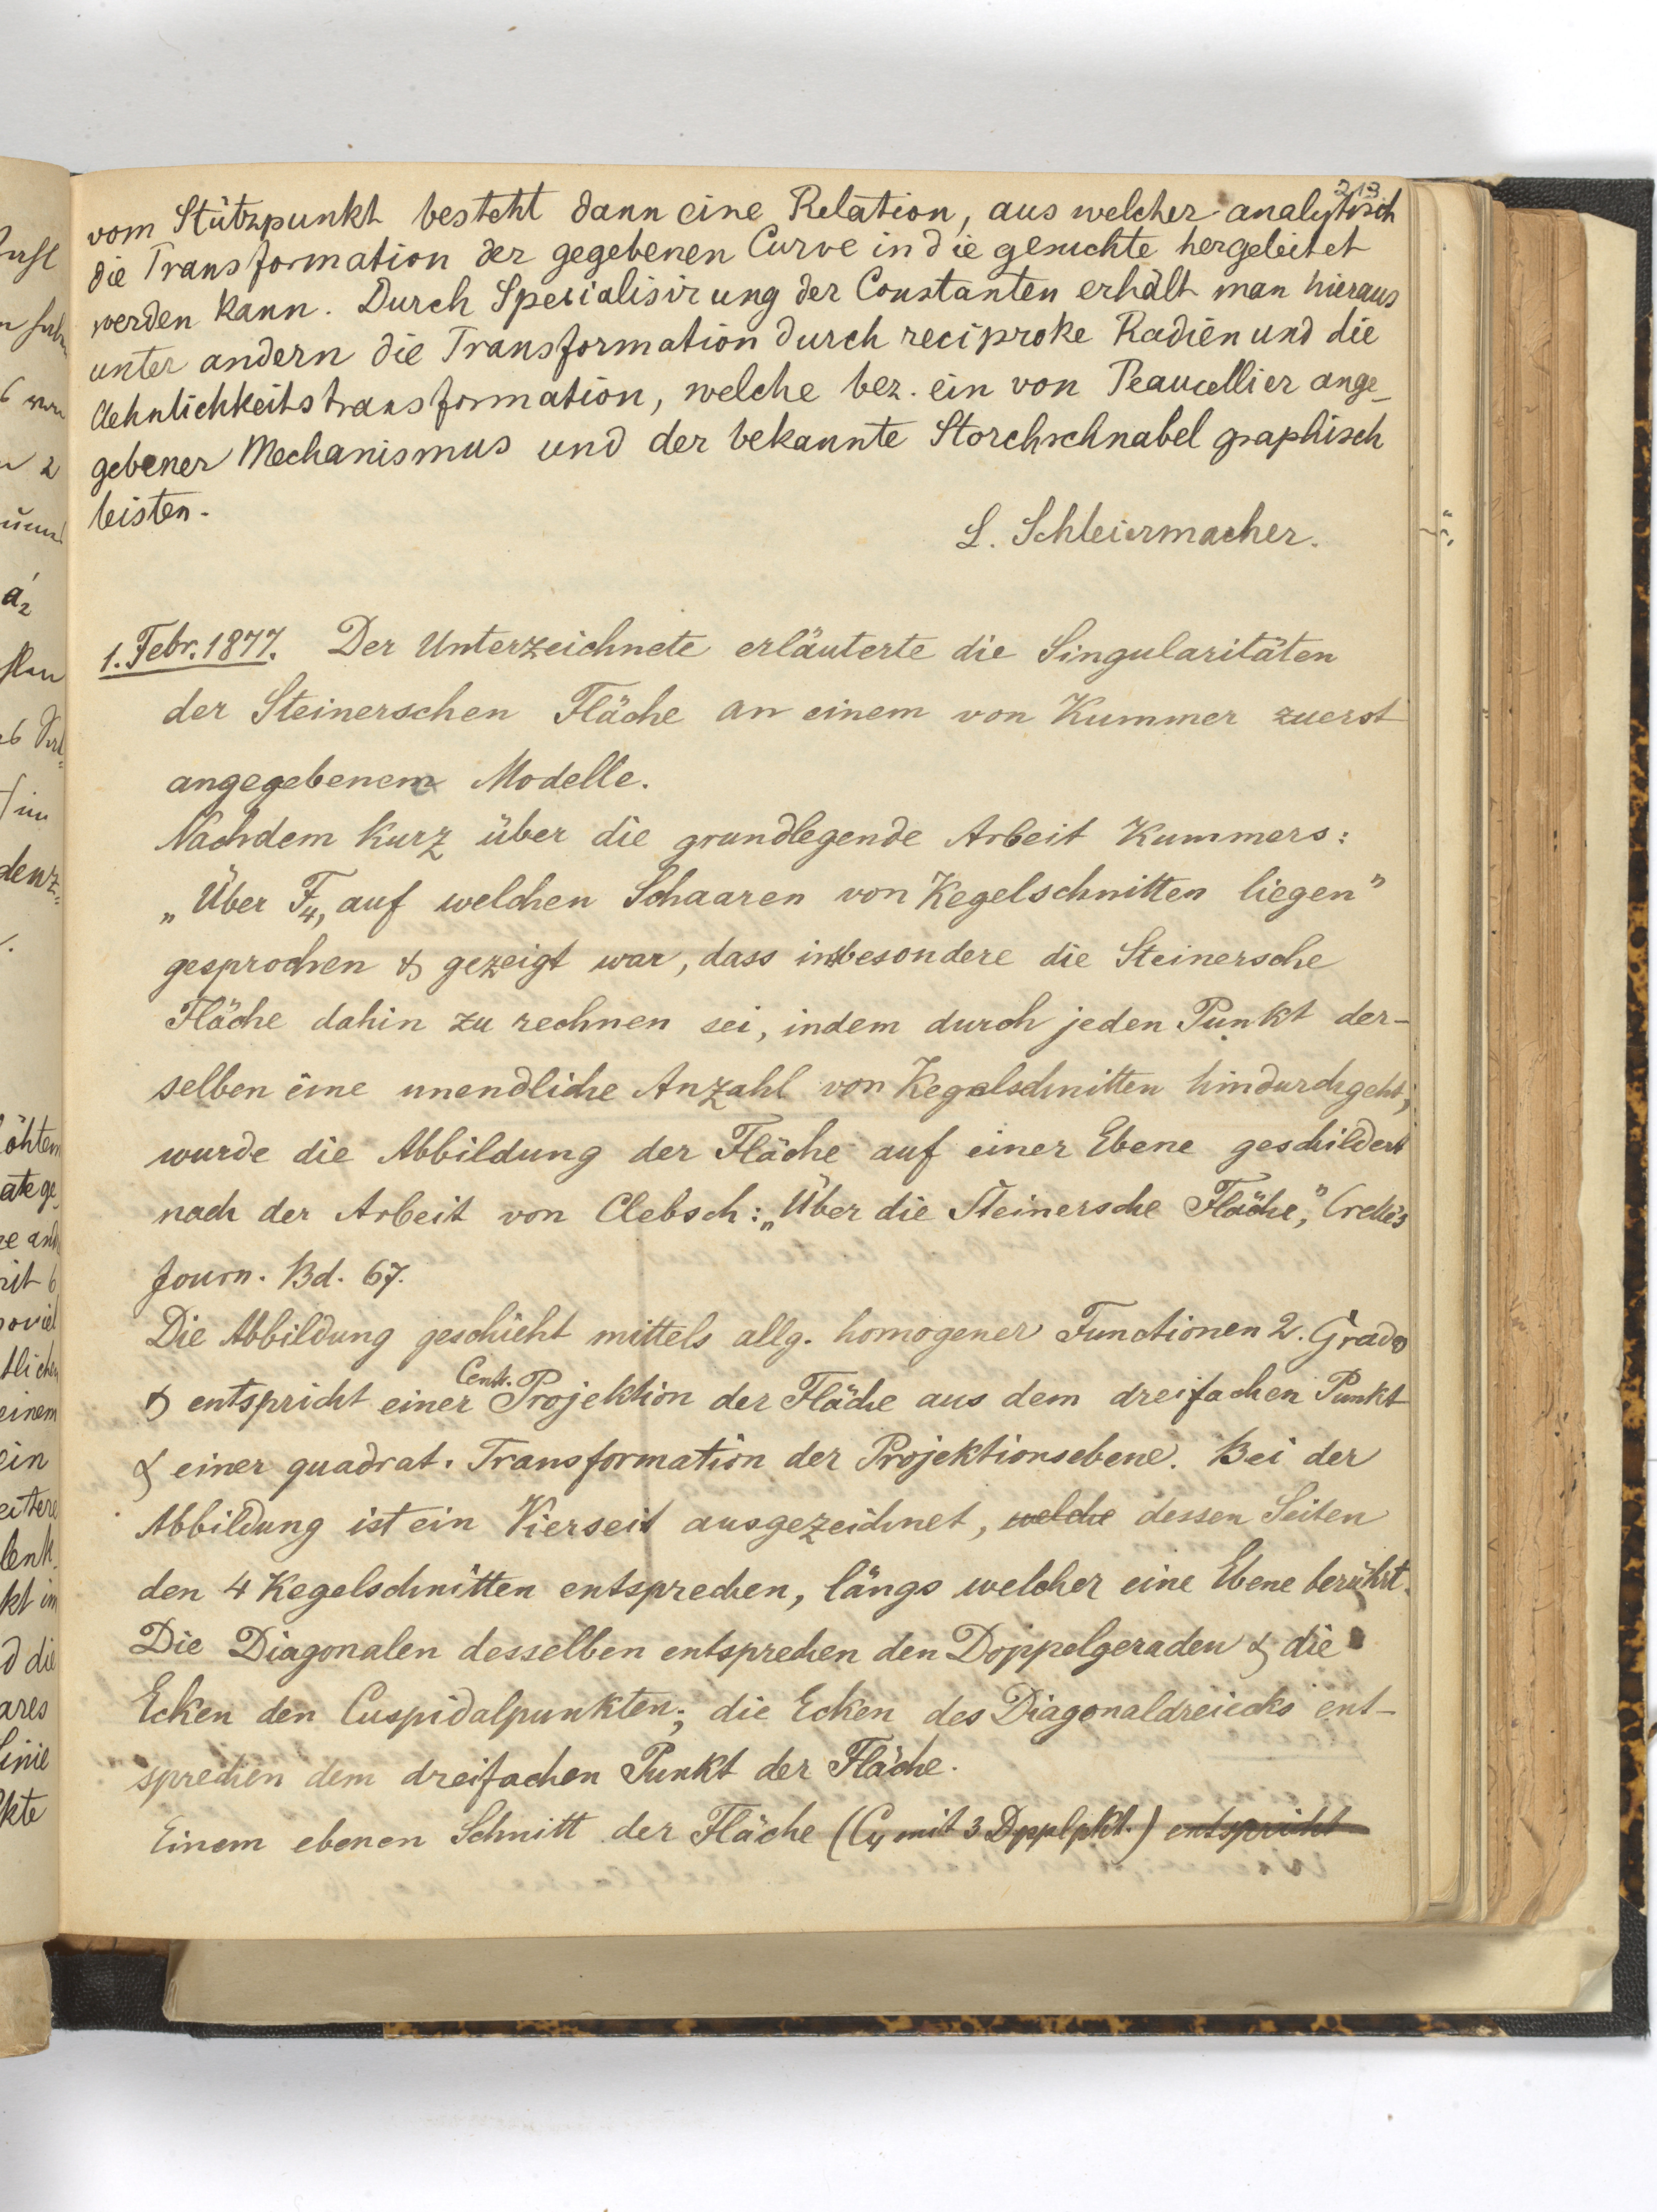 213
vom Stützpunkt besteht dann eine Relation, aus welcher analytisch
die Transformation der gegebenen Curve in die gesuchte hergeleitet
werden kann. Durch Specialisirung der Constanten erhält man hieraus
unter andern die Transformation durch reciproke Radien und die
Aehnlichkeitstransformation, welche bez. ein von Peaucellier ange-
gebener Mechanismus und der bekannte Storchschnabel graphisch
leisten.
L. Schleiermacher.
1. Febr. 1877. Der Unterzeichnete erläuterte die Singularitäten
der Steinerschen Fläche an einem von Kummer zuerst
angegebenem Modelle.
Nachdem kurz über die grundlegende Arbeit Kummers:
„Über F4, auf welchen Schaaren von Kegelschnitten liegen"
gesprochen & gezeigt war, dass insbesondere die Steinersche
Fläche dahin zu rechnen sei, indem durch jeden Punkt der-
selben eine unendliche Anzahl von Kegelschnitten hindurchgeht,
wurde die Abbildung der Fläche auf einer Ebene geschildert
nach der Arbeit von Clebsch: „Über die Steinersche Fläche", Crelle's
Journ. Bd. 67.
Die Abbildung geschieht mittels allg. homogener Functionen 2. Grads
& entspricht einer Centr. Projektion der Fläche aus dem dreifachen Punkt
& einer quadrat. Transformation der Projektionsebene. Bei der
Abbildung ist ein Vierseit ausgezeichnet, welche dessen Seiten
den 4 Kegelschnitten entsprechen, längs welcher eine Ebene berührt.
Die Diagonalen desselben entsprechen den Doppelgeraden & die
Ecken den Cuspidalpunkten; die Ecken des Diagonaldreiecks ent-
sprechen dem dreifachen Punkt der Fläche.
Einem ebenen Schnitt der Fläche (C4 mit 3 Dpplpkt.) entspricht